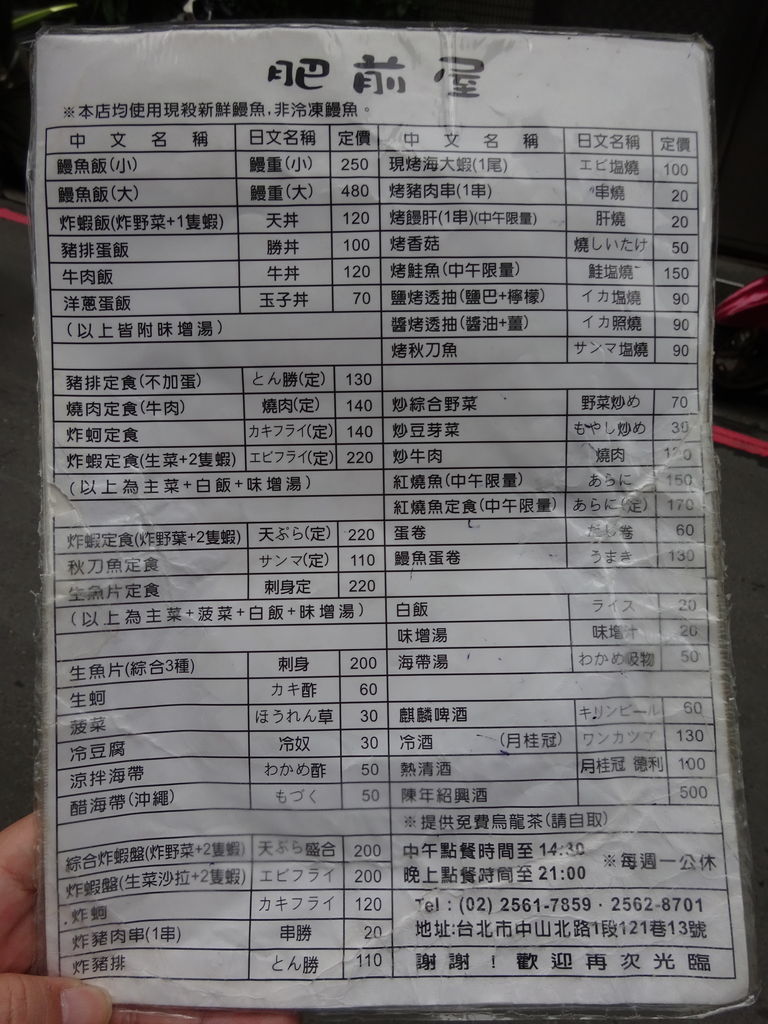 肥前屋
※本店均使用現殺新鮮鰻魚,非冷凍鰻魚。
中文名稱 日文名稱 定價
鰻魚飯(小) 鰻重(小) 250
鰻魚飯(大) 鰻重(大) 480
炸蝦飯(炸野菜+1隻蝦) 天丼 120
豬排蛋飯 勝丼 100
牛肉飯 牛丼 120
洋蔥蛋飯 玉子丼 70
(以上皆附味增湯)
豬排定食(不加蛋) とん勝(定) 130
燒肉定食(牛肉) 燒肉(定) 140
炸蚵定食 カキフライ(定) 140
炸蝦定食(生菜+2隻蝦) エビフライ(定) 220
(以上為主菜+白飯+味增湯)
炸蝦定食(炸野菜+2隻蝦) 天ぷら(定) 220
秋刀魚定食 サンマ(定) 110
生魚片定食 刺身定 220
(以上為主菜+菠菜+白飯+味增湯)
生魚片(綜合3種) 刺身 200
生蚵 カキ酢 60
菠菜 ほうれん草 30
冷豆腐 冷奴 30
涼拌海帶 わかめ酢 50
醋海帶(沖繩) もづく 50
綜合炸蝦盤(炸野菜+2隻蝦) 天ぷら盛合 200
炸蝦盤(生菜沙拉+2隻蝦) エビフライ 200
炸蚵 カキフライ 120
炸豬肉串(1串) 串勝 20
炸豬排 とん勝 110
中文名稱 日文名稱 定價
現烤海大蝦(1尾) エビ塩燒 100
烤豬肉串(1串) 串燒 20
烤鰻肝(1串)(中午限量) 肝燒 20
烤香菇 燒しいたけ 50
烤鮭魚(中午限量) 鮭塩燒 150
鹽烤透抽(鹽巴+檸檬) イカ塩燒 90
醬烤透抽(醬油+薑) イカ照燒 90
烤秋刀魚 サンマ塩燒 90
炒綜合野菜 野菜炒め 70
炒豆芽菜 もやし炒め 30
炒牛肉 燒肉 120
紅燒魚(中午限量) あらに 150
紅燒魚定食(中午限量) あらに(定) 170
蛋卷 だし卷 60
鰻魚蛋卷 うまき 130
白飯 ライス 20
味增湯 味增汁 20
海帶湯 わかめ吸物 50
麒麟啤酒 キリンビール 60
冷酒 (月桂冠) ワンカツプ 130
熱清酒 月桂冠 德利 100
陳年紹興酒 500
※提供免費烏龍茶(請自取)
中午點餐時間至 14:30 ※每週一公休
晚上點餐時間至 21:00
Tel : (02) 2561-7859 · 2562-8701
地址:台北市中山北路1段121巷13號
謝謝!歡迎再次光臨